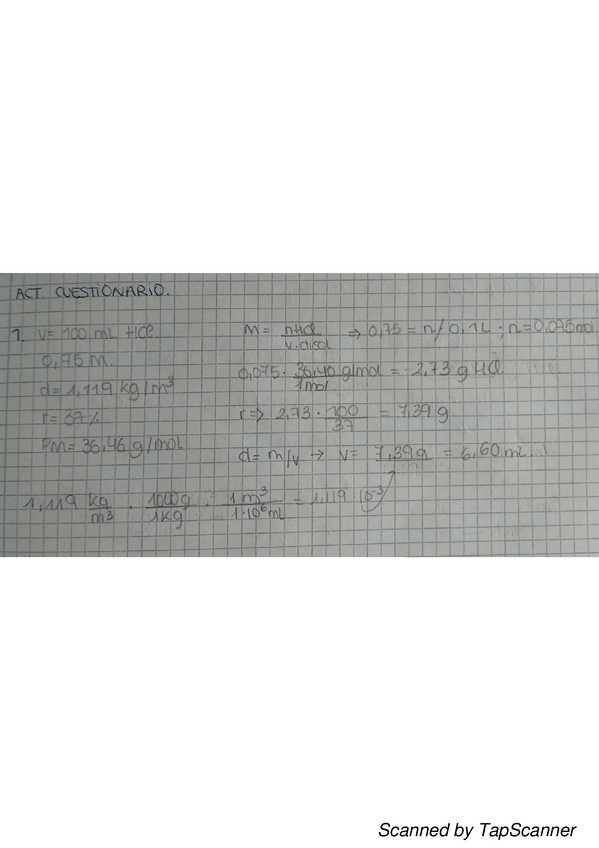 ACT. CUESTIONARIO.
1. V= 100 mL HCl.
0,75 M.
d= 1,119 kg/m³
r= 37%
PM= 36,46 g/mol
M= nHCl / v.disol ⇒ 0,75 = n/0,1L ; n=0,075mol
0,075 · 36,46 g/mol / 1mol = 2,73 g HCl
r⇒ 2,73 · 100/37 = 7,39 g
d= m/v → v= 7,39g = 6,60 mL.
1,119 kg/m³ · 1000g/1kg · 1 m³/1·10⁶ mL = 1,119·10⁻³
Scanned by TapScanner